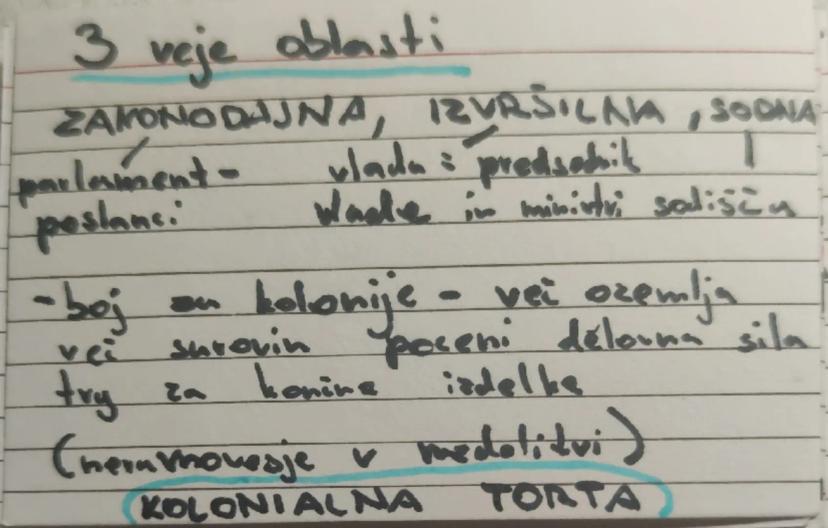 3 veje oblasti
ZAKONODAJNA, IZVRŠILNA, SODNA
parlament - vlada: predsednik
poslanci vlade in ministri sodišča
- boj za kolonije - več ozemlja
več surovin poceni delovna sila
trg za konine izdelke
(neravnovesje v medolitvi)
KOLONIALNA TORTA